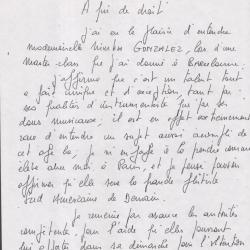 A qui de droit
j'ai eu le plaisir d'entendre
mademoiselle GONZALEZ, lors d'une
master class que j'ai donné à Barcelone.
J'affirme que c'est un talent tout
a fait unique et d'exception tant par
ses qualités d'instrumentiste que par ses
dons musicaux; il est en effet
rare d'entendre un sujet aussi accompli de
cet age là, je m'engage à la prendre comme
élève chez moi à Paris, et je peux
affirmer qu'elle sera la grande flûtiste
Sud Americaine de demain.
Je remercie par avance les autorités
compétentes, pour l'aide qu'elles pourront
lui dans sa démarche pour l'obtention